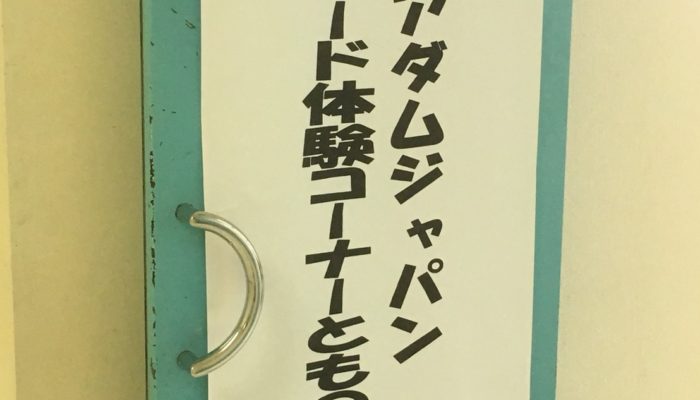 アダムジャパン
ード体験コーナーとも